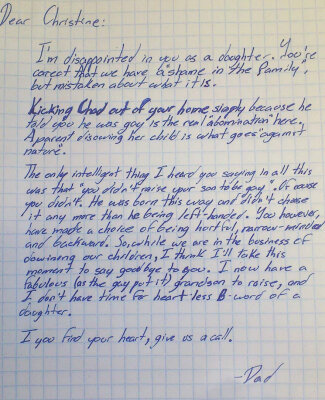 Dear Christine:
I'm disappointed in you as a daughter. You're
correct that we have a "shame in the family",
but mistaken about what it is.
Kicking Chad out of your home simply because he
told you he was gay is the real "abomination" here.
A parent disowning her child is what goes "against
nature".
The only intelligent thing I heard you saying in all this
was that "you didn't raise your son to be gay". Of course
you didn't. He was born this way and didn't choose
it any more than he being left-handed. You however,
have made a choice of being hurtful, narrow-minded
and backward. So, while we are in the business of
disowning our children, I think I'll take this
moment to say goodbye to you. I now have a
fabulous (as the gay put it) grandson to raise, and
I don't have time for heart-less B-word of a
daughter.
If you find your heart, give us a call.
-Dad